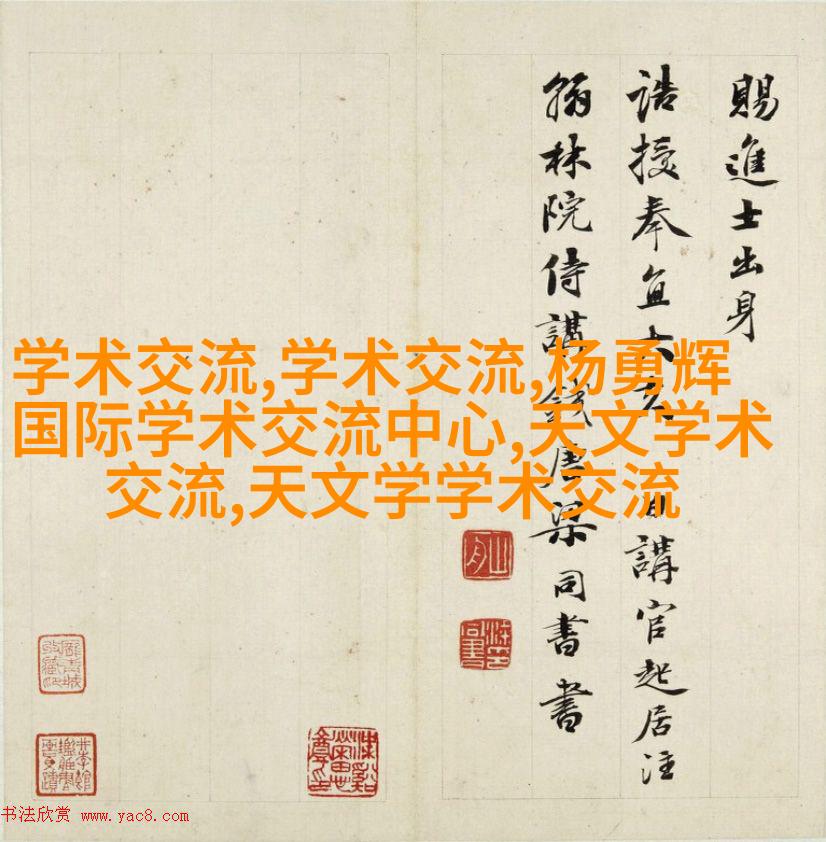 赐進士出身
誥授奉直大夫日講官起居注
翰林院侍講錢唐梁同書書
学术交流,学术交流,杨勇辉
国际学术交流中心,天文学术
交流,天文学学术交流
书法欣赏 www.yac8.com